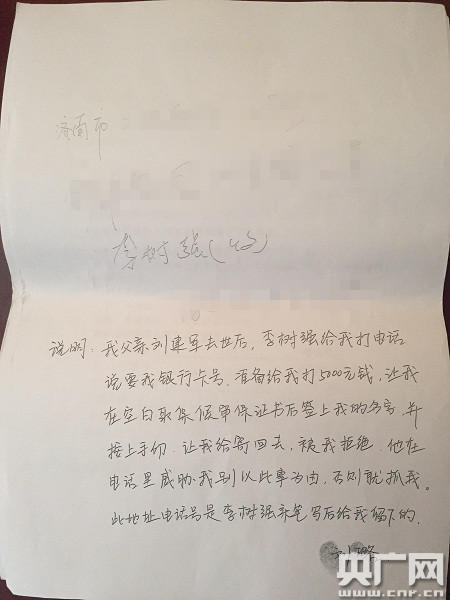 济南市
李树强(收)
说明:我父亲刘建军去世后,李树强给我打电话
说要我银行卡号.准备给我打5000元钱,让我
在空白取保候审保证书后签上我的名字.并
按上手印.让我给寄回去,被我拒绝.他在
电话里威胁我别以此事为由,否则就抓我。
此地址电话号是李树强亲笔写后给我留下的.
央广网
www.cnr.cn